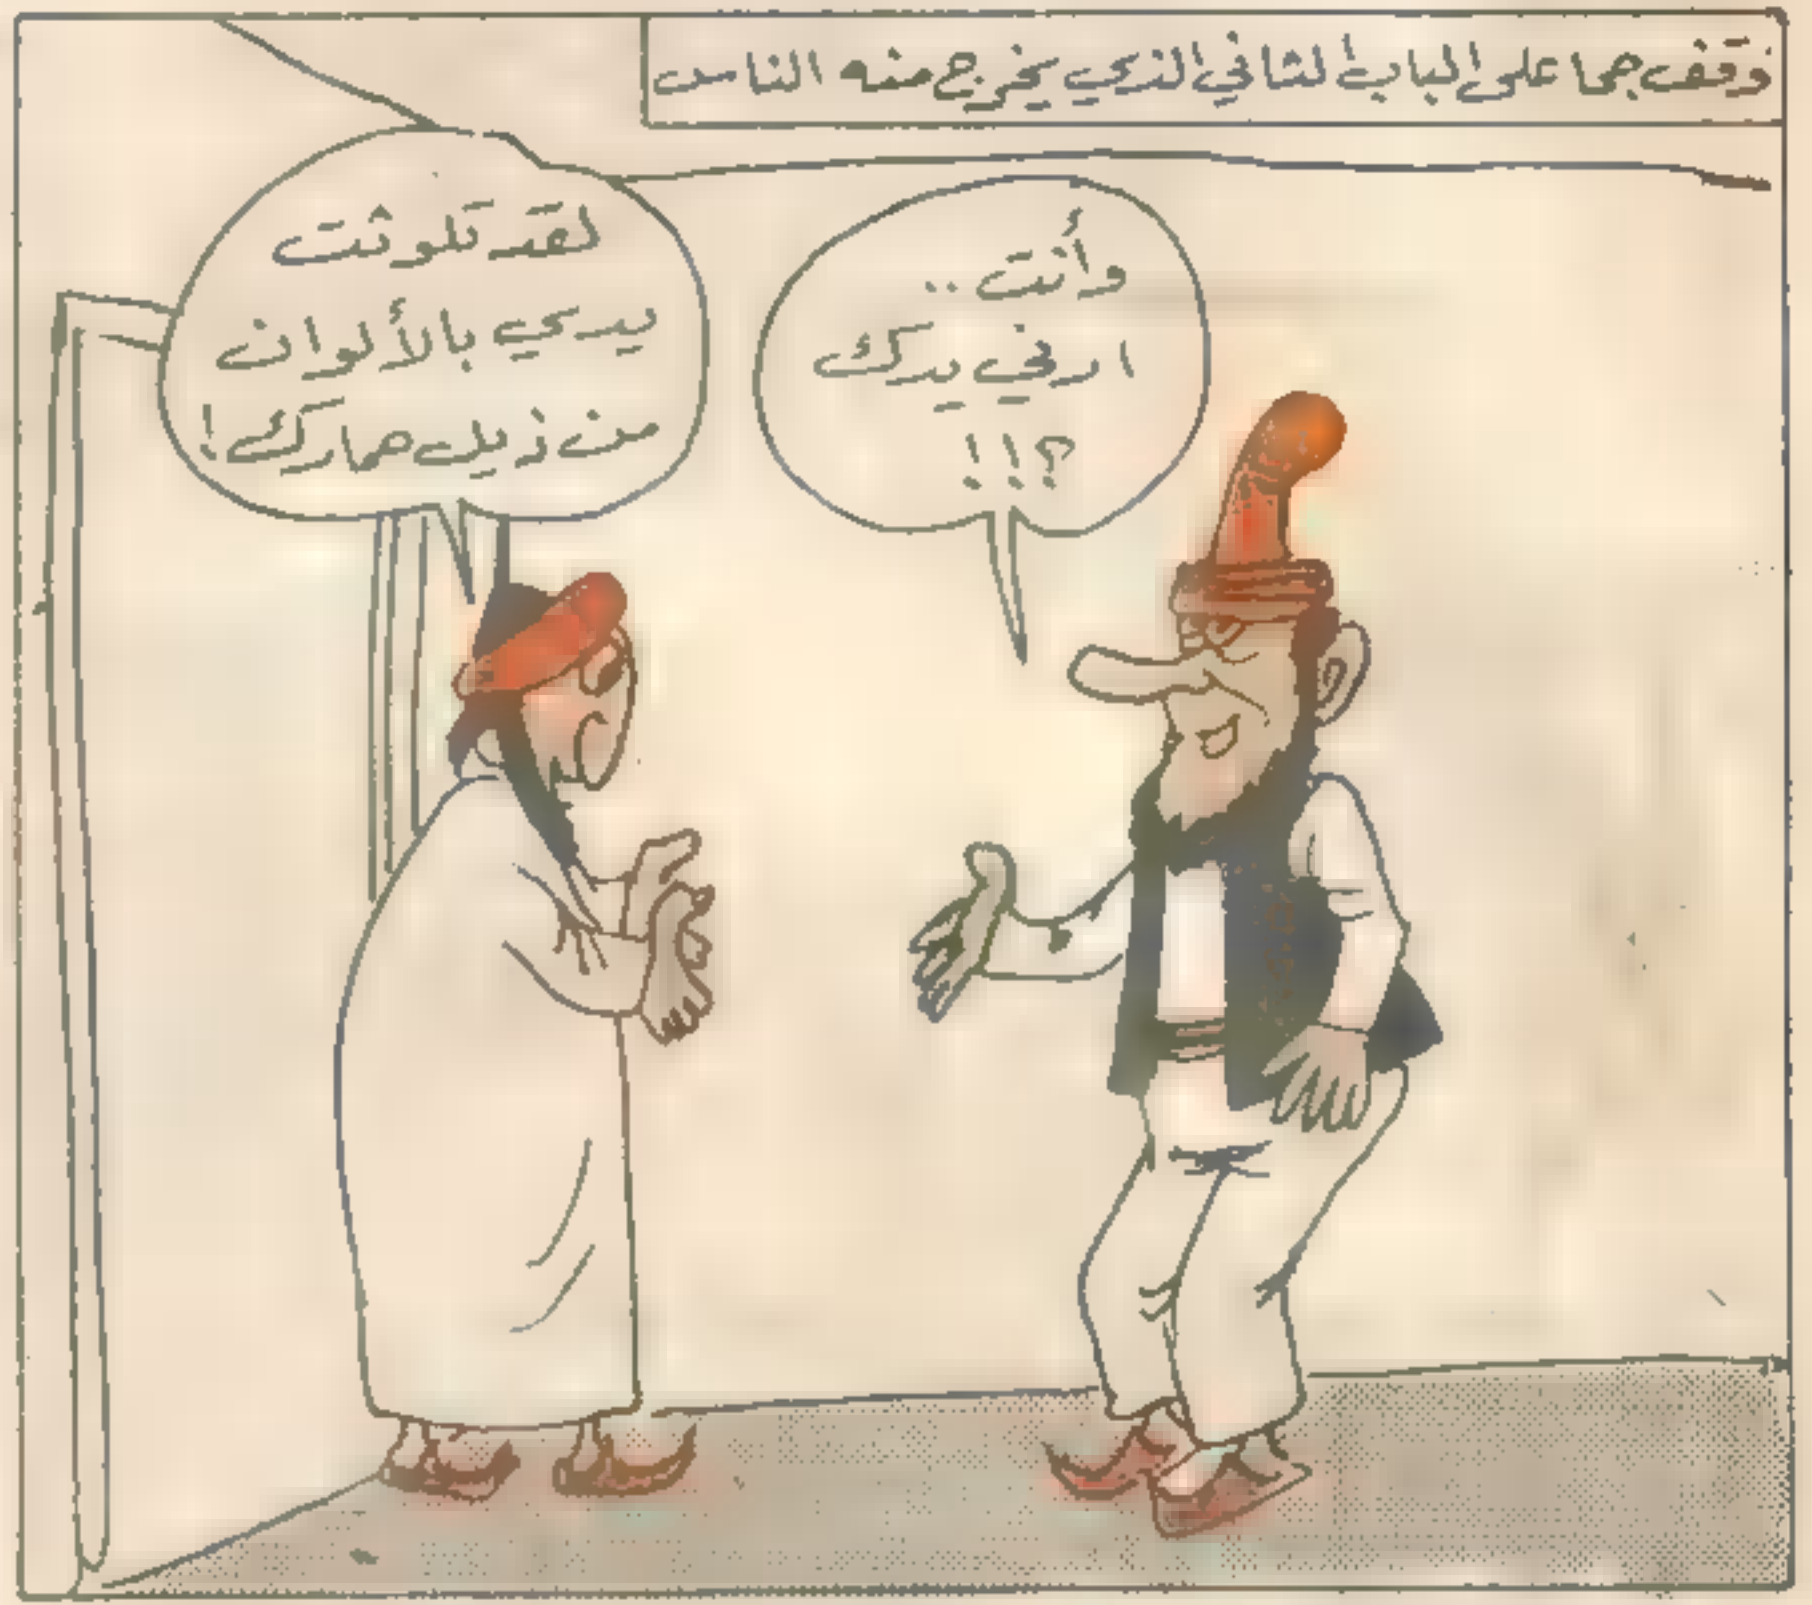 وقف جحا على الباب الثاني الذي يخرج منه الناس
وأنت ..
ارني يدك
؟!!
لقد تلوثت
يدي بالألوان
من ذيل حمارك!